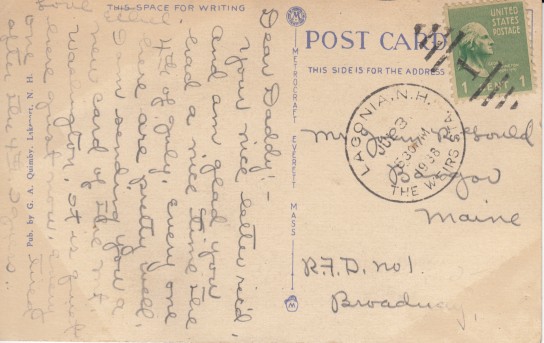 THIS SPACE FOR WRITING
POST CARD
THIS SIDE IS FOR THE ADDRESS
UNITED STATES POSTAGE
1 CENT 1
LACONIA, N.H.
1
5 30 PM
1938
THE WEIRS
Dear Daddy:-
Your nice letter rec'd
and am glad you
had a nice time the
4th of July, every one
here are pretty well,
I am sending you a
new card of the Mt.
Washington, it is quite
one
after the 4th
Mr.
Bangor
Maine
R.F.D. No 1.
Broadway,
METROCRAFT EVERETT MASS
Pub. by G. A. Quimby, Lakeport, N. H.